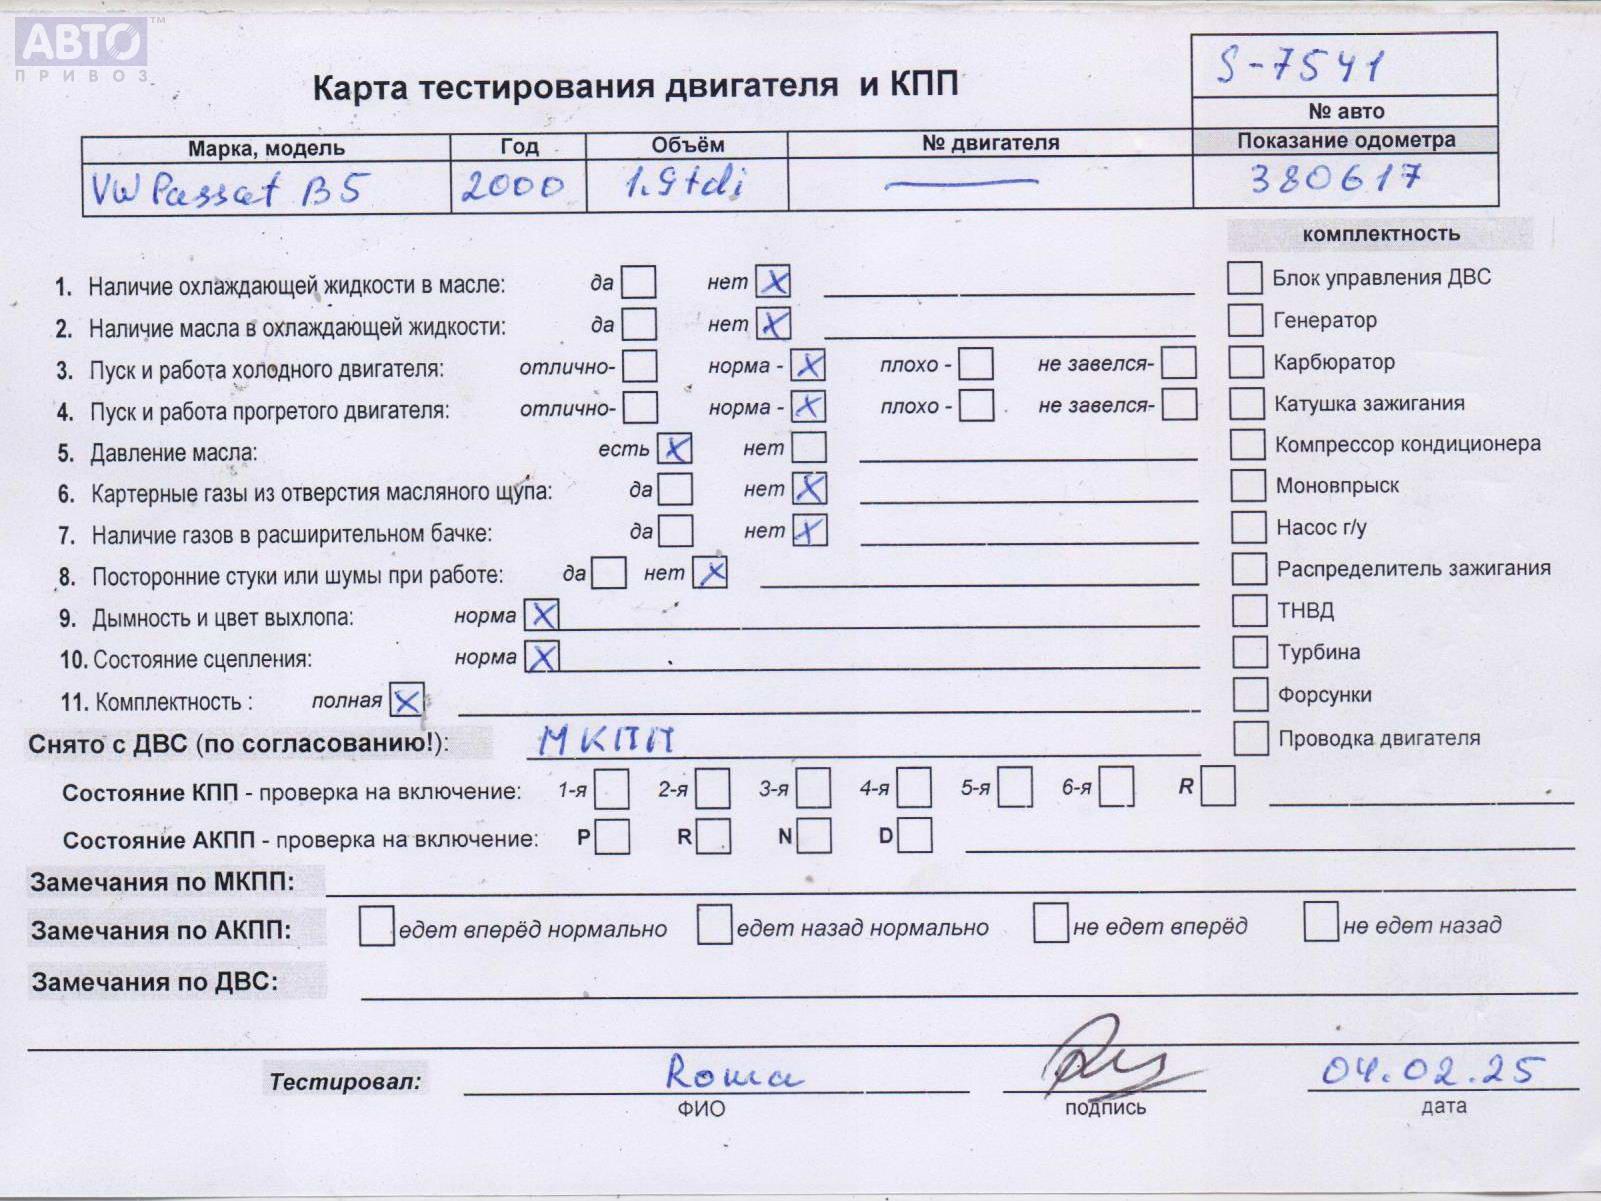 АВТО™
ПРИВОЗ
Карта тестирования двигателя и КПП
S-7541
№ авто
Марка, модель Год Объём № двигателя Показание одометра
VW Passat B5 2000 1.9tdi — 380617
комплектность
1. Наличие охлаждающей жидкости в масле: да нет X Блок управления ДВС
2. Наличие масла в охлаждающей жидкости: да нет X Генератор
3. Пуск и работа холодного двигателя: отлично- норма - X плохо - не завелся- Карбюратор
4. Пуск и работа прогретого двигателя: отлично- норма - X плохо - не завелся- Катушка зажигания
5. Давление масла: есть X нет Компрессор кондиционера
6. Картерные газы из отверстия масляного щупа: да нет X Моновпрыск
7. Наличие газов в расширительном бачке: да нет X Насос г/у
8. Посторонние стуки или шумы при работе: да нет X Распределитель зажигания
9. Дымность и цвет выхлопа: норма X ТНВД
10. Состояние сцепления: норма X Турбина
11. Комплектность : полная X Форсунки
Снято с ДВС (по согласованию!): МКПП Проводка двигателя
Состояние КПП - проверка на включение: 1-я 2-я 3-я 4-я 5-я 6-я R
Состояние АКПП - проверка на включение: P R N D
Замечания по МКПП:
Замечания по АКПП: едет вперёд нормально едет назад нормально не едет вперёд не едет назад
Замечания по ДВС:
Тестировал: Roma 04.02.25
ФИО подпись дата